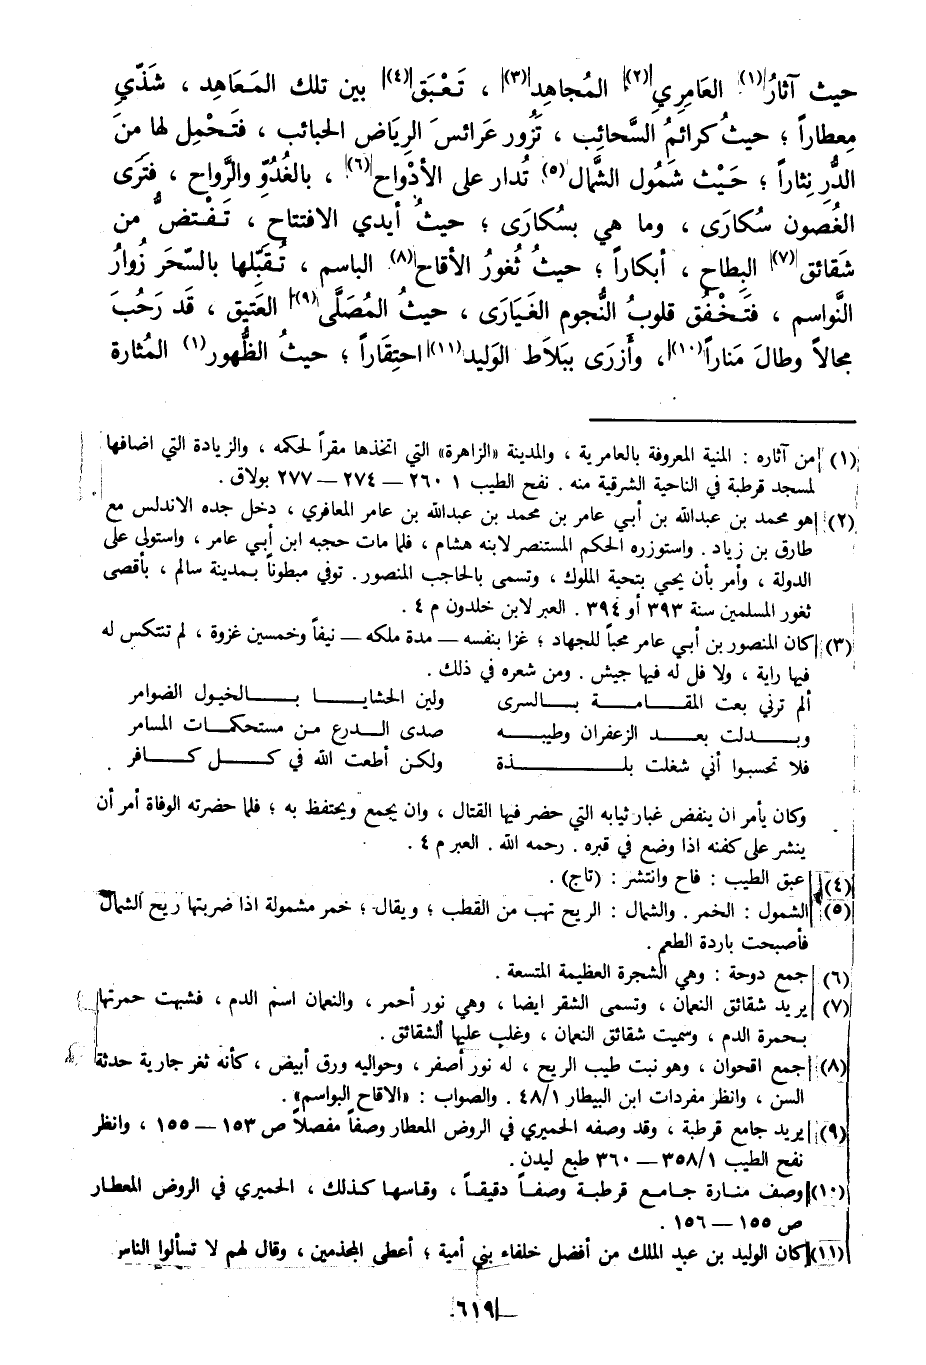 حيث آثارُ(١) العَامِري(٢) المُجاهِد(٣) ، تَعْبَق(٤) بين تلك المَعَاهِد ، شَذَّي
مِعطاراً ؛ حيثُ كرائمُ السَّحائب ، تَزُور عَرائسَ الرِياض الحَبائب ، فتَحْمِل لها مِنَ
الدُّر نِثاراً ؛ حَيْث شَمُول الشَّمال(٥) تُدار على الأدْواح(٦) ، بالغُدُوّ والرَّواح ، فتَرَى
الغُصون سُكارَى ، وما هي بسُكارَى ؛ حيثُ أيدي الافتتاح ، تَفْتض من
شَقائق(٧) البِطاح ، أبكاراً ؛ حيثُ ثغورُ الأقاح(٨) الباسم ، تُقبِّلها بالسَّحَر زُوارُ
النَّواسم ، فتَخْفُق قلوبُ النُّجوم الغَيَارَى ، حيثُ المُصَلَّى(٩) العتيق ، قَد رَحُبَ
مجالاً وطالَ مَناراً(١٠) ، وأَزرَى ببَلاط الوَليد(١١) احتِقاراً ؛ حيثُ الظُّهور(١) المُثارة
(١) من آثاره : المنية المعروفة بالعامرية ، والمدينة «الزاهرة» التي اتخذها مقراً لحكمه ، والزيادة التي اضافها
لمسجد قرطبة في الناحية الشرقية منه . نفح الطيب ١ ٢٦٠ – ٢٧٤ – ٢٧٧ بولاق .
(٢) هو محمد بن عبدالله بن أبي عامر بن محمد بن عبدالله بن عامر المعافري ، دخل جده الاندلس مع
طارق بن زياد . واستوزره الحكم المستنصر لابنه هشام ، فلما مات حجبه ابن أبي عامر ، واستولى على
الدولة ، وأمر بأن يحيي بتحية الملوك ، وتسمى بالحاجب المنصور . توفي مبطوناً بمدينة سالم ، بأقصى
ثغور المسلمين سنة ٣٩٣ أو ٣٩٤ . العبر لابن خلدون م ٤ .
(٣) كان المنصور بن أبي عامر محباً للجهاد ؛ غزا بنفسه – مدة ملكه – نيفاً وخمسين غزوة ، لم تنتكس له
فيها راية ، ولا فل له فيها جيش . ومن شعره في ذلك .
ألم ترني بعت المقـامـة بـالسرى ولين الحشايـا بـالخيول الضوامر
وبـدلت بعـد الزعفران وطيبـه صدى الـدرع من مستحكمـات المسامر
فلا تحسبوا أني شغلت بلـذة ولكن أطعت الله في كـل كـافر .
وكان يأمر ان ينفض غبار ثيابه التي حضر فيها القتال ، وان يجمع ويحتفظ به ؛ فلما حضرته الوفاة أمر أن
ينشر على كفنه اذا وضع في قبره . رحمه الله . العبر م ٤ .
(٤) عبق الطيب : فاح وانتشر : (تاج) .
(٥) الشمول : الخمر . والشمال : الريح تهب من القطب ؛ ويقال ؛ خمر مشمولة اذا ضربتها ريح الشمال
فأصبحت باردة الطعم .
(٦) جمع دوحة : وهي الشجرة العظيمة المتسعة .
(٧) يريد شقائق النعمان ، وتسمى الشقر ايضا ، وهي نور أحمر ، والنعمان اسم الدم ، فشبهت حمرتها
بحمرة الدم ، وسميت شقائق النعمان ، وغلب عليها الشقائق .
(٨) جمع اقحوان ، وهو نبت طيب الريح ، له نور أصفر ، وحواليه ورق أبيض ، كأنه ثغر جارية حدثة
السن ، وانظر مفردات ابن البيطار ٤٨/١ . والصواب : «الاقاح البواسم» .
(٩) يريد جامع قرطبة ، وقد وصفه الحميري في الروض المعطار وصفاً مفصلاً ص ١٥٣ – ١٥٥ ، وانظر
نفح الطيب ٣٥٨/١ – ٣٦٠ طبع ليدن .
(١٠) وصف منارة جامع قرطبة وصفاً دقيقاً ، وقاسها كذلك ، الحميري في الروض المعطار
ص ١٥٥ – ١٥٦ .
(١١) كان الوليد بن عبد الملك من أفضل خلفاء بني أمية ؛ أعطى المجذمين ، وقال لهم لا تسألوا الناس
٦١٩